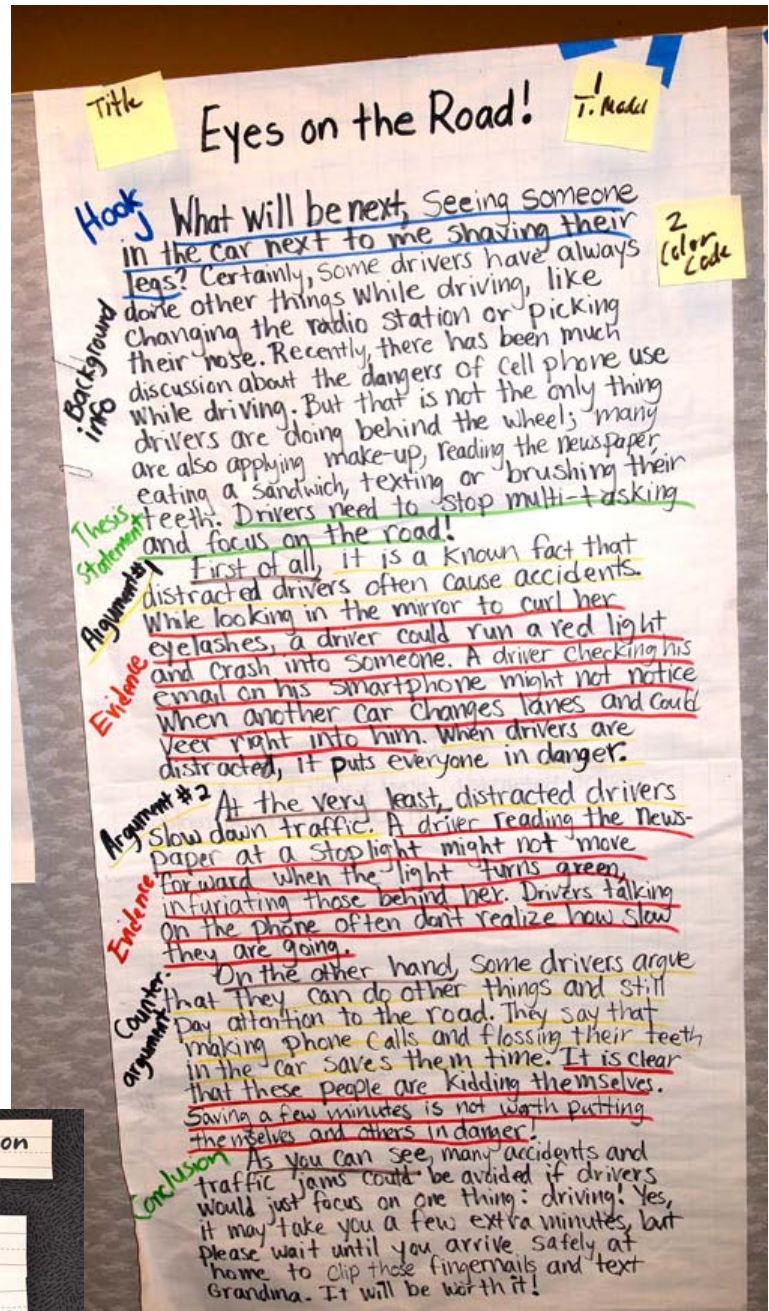 Title
Eyes on the Road!
1
T. Model
Hook
What will be next, Seeing someone
in the car next to me shaving their
legs? Certainly, some drivers have always
2
Color
Code
done other things while driving, like
changing the radio station or picking
their nose. Recently, there has been much
Background
info
discussion about the dangers of cell phone use
while driving. But that is not the only thing
drivers are doing behind the wheel; many
are also applying make-up, reading the newspaper,
eating a sandwich, texting or brushing their
teeth. Drivers need to stop multi-tasking
Thesis
Statement
and focus on the road!
Argument #1
First of all, it is a known fact that
distracted drivers often cause accidents.
While looking in the mirror to curl her
eyelashes, a driver could run a red light
and crash into someone. A driver checking his
Evidence
email on his smartphone might not notice
when another car changes lanes and could
veer right into him. When drivers are
distracted, it puts everyone in danger.
Argument #2
At the very least, distracted drivers
slow down traffic. A driver reading the news-
paper at a stoplight might not move
forward when the light turns green,
Evidence
infuriating those behind her. Drivers talking
on the phone often don't realize how slow
they are going.
Counter-
argument
On the other hand, some drivers argue
that they can do other things and still
pay attention to the road. They say that
making phone calls and flossing their teeth
in the car saves them time. It is clear
that these people are kidding themselves.
Saving a few minutes is not worth putting
themselves and others in danger!
Conclusion
As you can see, many accidents and
traffic jams could be avoided if drivers
would just focus on one thing: driving! Yes,
it may take you a few extra minutes, but
please wait until you arrive safely at
home to clip those fingernails and text
Grandma. It will be worth it!
on